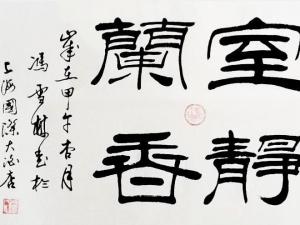 室静
蘭香
歲在甲午杏月
馮雪林書於
上海國際大酒店